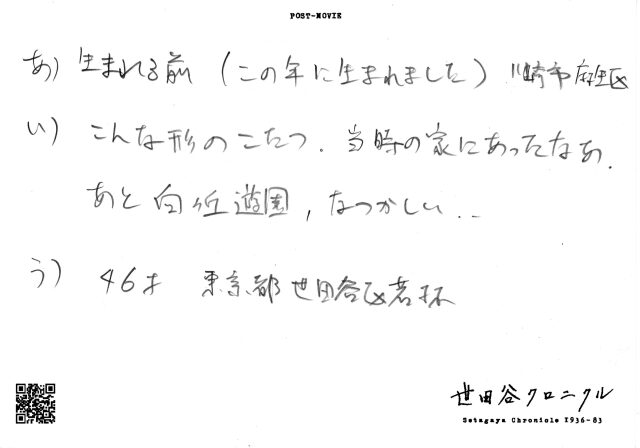 POST-MOVIE
あ) 生まれる前 (この年に生まれました) 川崎市麻生区
い) こんな形のこたつ. 当時の家にあったなあ.
あと向ヶ丘遊園, なつかしい...
う) 46才 東京都世田谷区若林
世田谷クロニクル
Setagaya Chronicle 1936-83